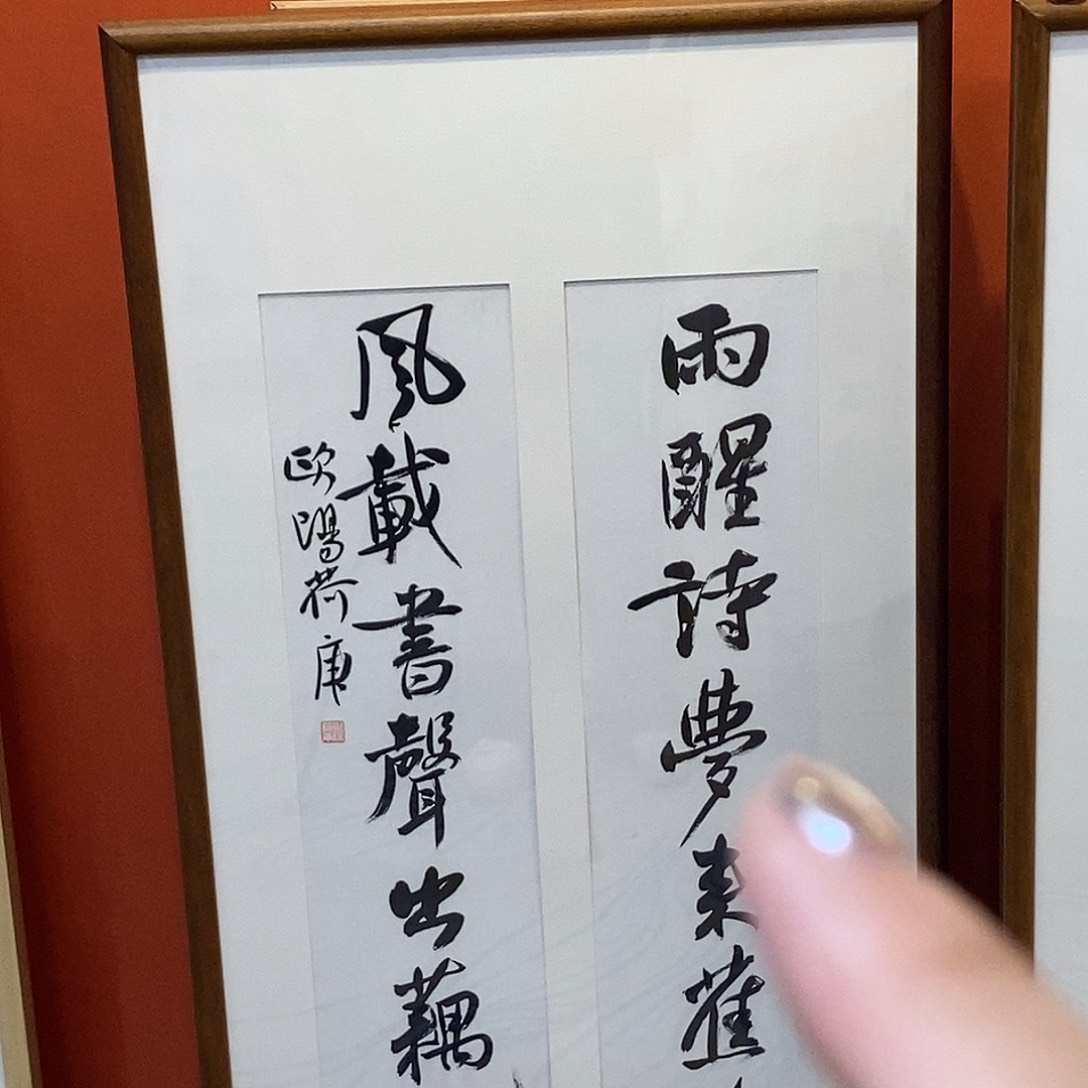 雨醒詩夢來蕉
風載書聲出藕
欧陽荷庚